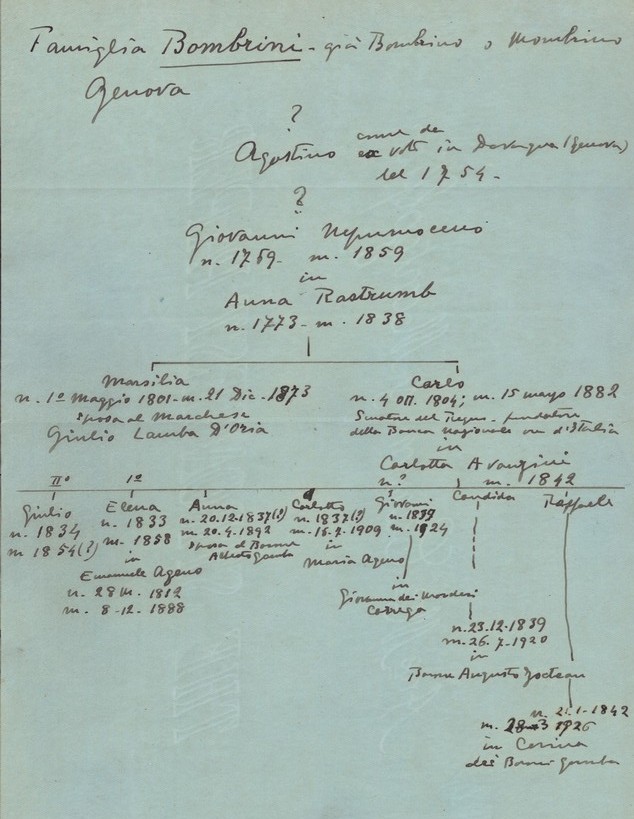 Famiglia Bombrini - già Bombrino o Mombrino
Genova
?
Agostino come da
ex voto in Davagna (Genova)
del 1754.
?
Giovanni Nepumoceno
n. 1769. m. 1859
in
Anna Rastrumb
n. 1773 - m. 1838
Marsilia
n. 1º Maggio 1801 - m. 21 Dic. 1873
sposa al Marchese
Giulio Lamba D'Oria
Carlo
n. 4 Ott. 1804; m. 15 marzo 1882
Senatore del Regno - fondatore
della Banca Nazionale ora d'Italia
in
Carlotta Avanzini
n. ? m. 1842
IIº
Giulio
n. 1834
m 1854 (?)
Iª
Elena
n. 1833
m. 1858
in
Emanuele Ageno
n. 28 III. 1812
m. 8-12. 1888
Anna
n. 20.12.1837 (?)
m. 20.4.1892
sposa al Barone
Alberto Gamba
Carlotto
n. 1837 (?)
m. 16.7.1909
in
Maria Ageno
Giovanni
n. 1839
m. 1924
in
Giovanna dei Marchesi
Carrega
Candida
n. 23.12.1839
m. 26.7.1920
in
Barone Augusto Jocteau
Raffaele
n. 21.1.1842
m. 28 3 1926
in Corinna
dei Baroni Gamba